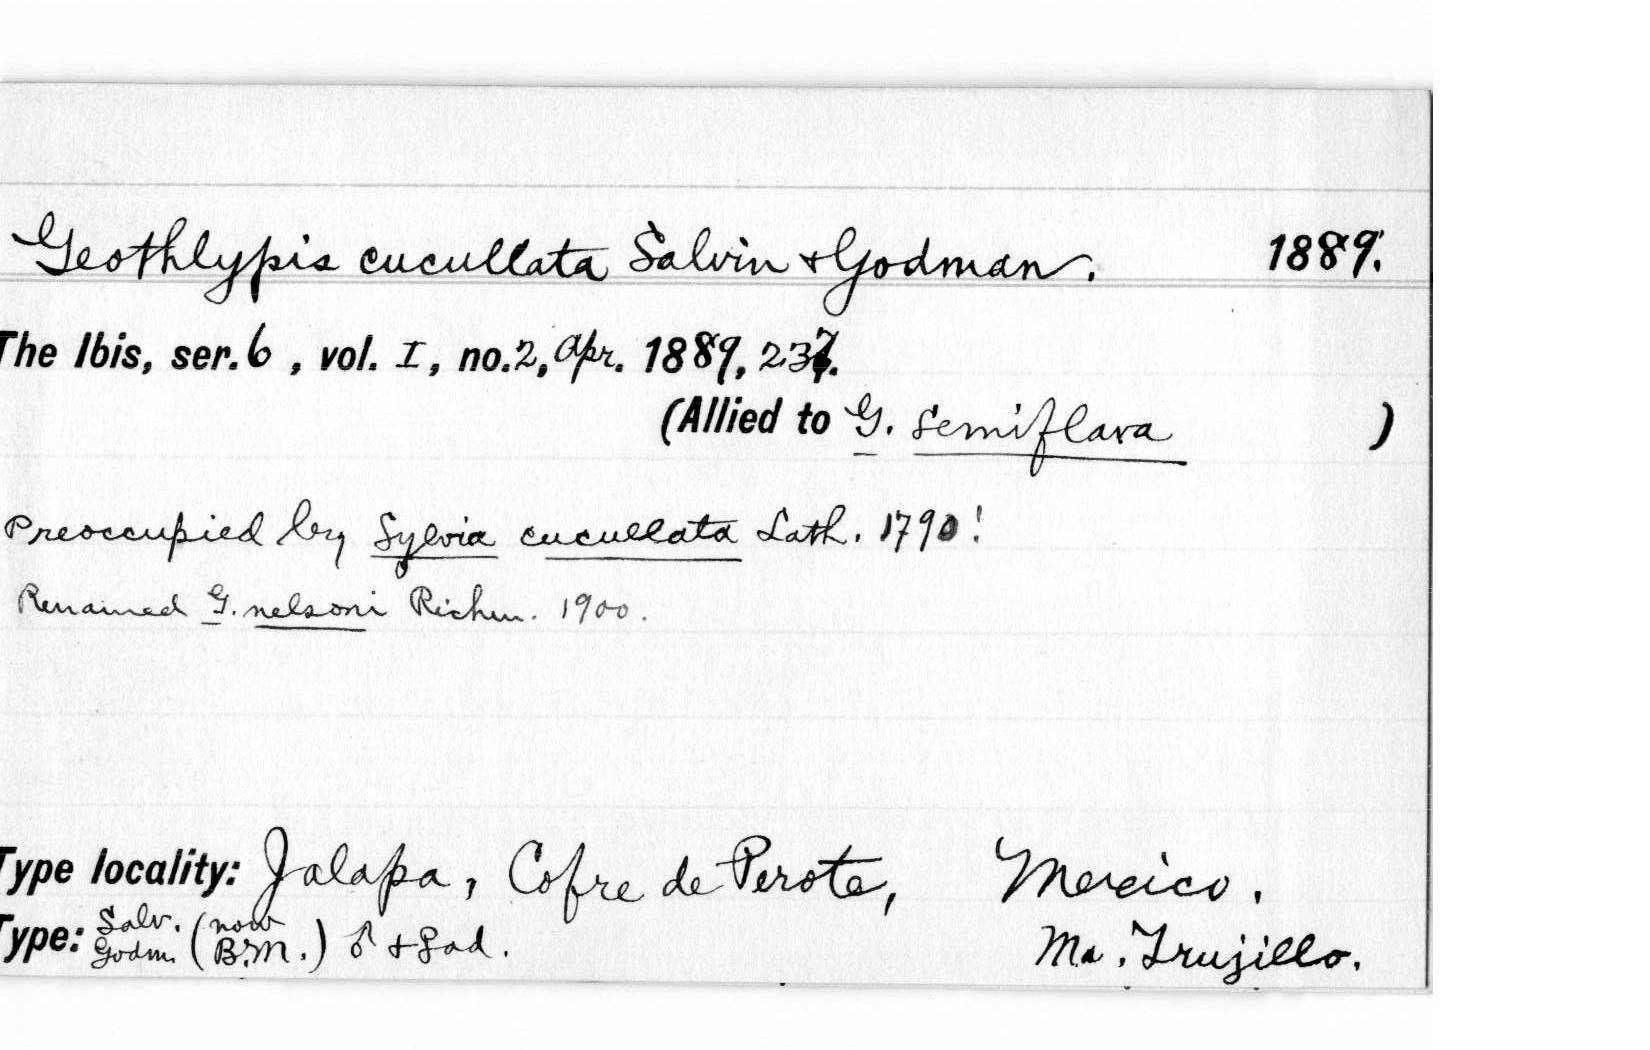 Geothlypis cucullata Salvin & Godman. 1889.
The Ibis, ser. 6, vol. I, no. 2, Apr. 1889, 237.
(Allied to G. semiflava )
Preoccupied by Sylvia cucullata Lath. 1790!
Renamed G. nelsoni Richm. 1900.
Type locality: Jalapa, Cofre de Perote, Mexico.
Type: Salv. Godm. (now B.M.) ♂ + ♀ ad. M. Trujillo.